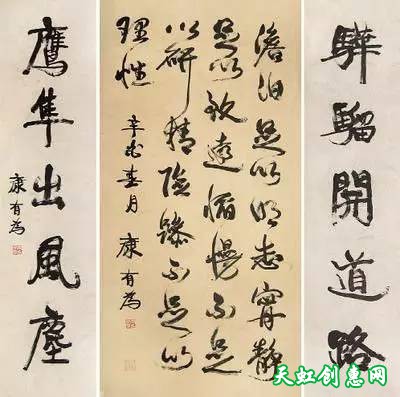 驊騮開道路
澹泊足以明志寧靜
足以致遠慆慢不足
以研精險躁不足以
理性
辛 春月 康有為
鷹隼出風塵
康有為
天虹创惠网